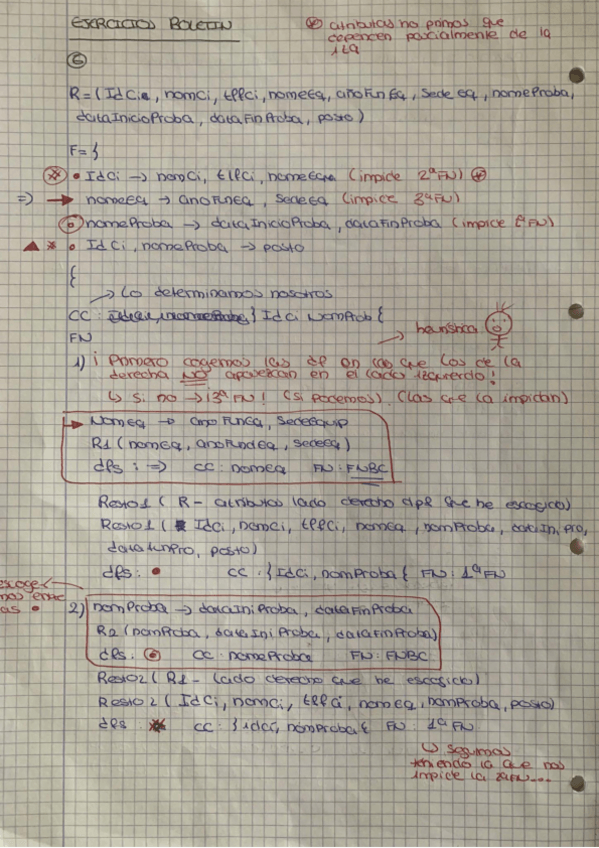 EJERCICIOS BOLETIN
* atributos no primos que dependen parcialmente de la
6
R = (IdCi, nomCi, tlfCi, nomeEq, añoFunEq, Sede eq, nomeProba,
dataInicioProba, dataFinProba, posto)
F = {
• IdCi → nomCi, tlfCi, nomeEq (impide 2ªFN)
⇒ → nomeEq → anoFunEq, sedeEq (impide 3ªFN)
nomeProba → dataInicioProba, dataFinProba (impide FN)
▲ * • IdCi, nomeProba → posto
{
→ Lo determinamos nosotros
CC: } IdCi NomProb {
→ heurística
FN
1) ¡ Primero cogemos las df en las que los de la
derecha NO aparezcan en el lado izquierdo!
↳ Si no → ¡3ª FN! (si podemos) (las que la impidan)
→ Nomeq → anoFunEq, sedeequip
R1 (nomeq, anoFundEq, sedeeq)
dfs: ⇒ CC: nomeq FN: FNBC
Resto1 (R - atributos lado derecho dpf que he escogido)
Resto1 (IdCi, nomci, tlfci, nomeq, nomProba, dataIni, pro,
datafinPro, posto)
dfs: • CC: {IdCi, nomProba{ FN: 1ªFN
2) nomProba → dataIniProba, dataFinProba
R2 (nomProba, dataIniProba, dataFinProba)
dfs: CC: nomeProba FN: FNBC
Resto2 (R1 - lado derecho que he escogido)
Resto2 (IdCi, nomci, tlfci, nomeq, nomProba, posto)
dfs: * CC: }idci, nomProba{ FN: 1ª FN
↳ seguimos
teniendo la que nos
impide la 2ªFN...